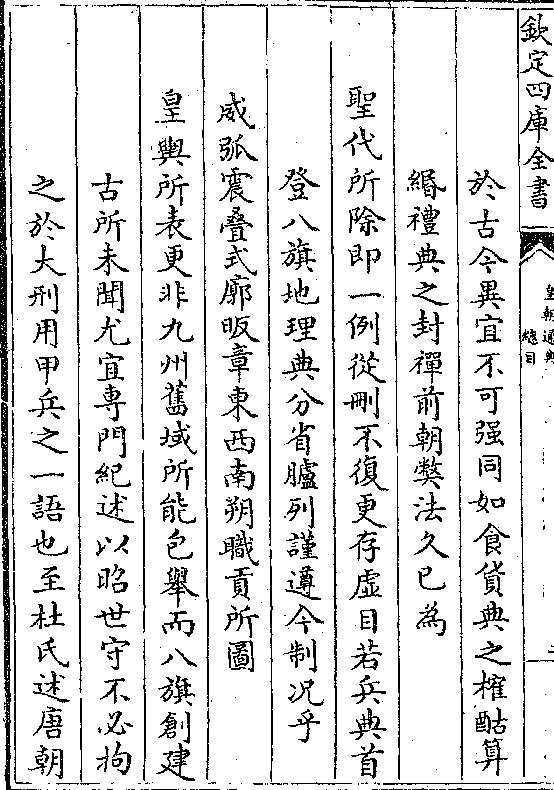 欽定四庫全書
皇朝通典
總目
於古今異宜不可强同如食貨典之榷酤算
緡禮典之封禪前朝弊法久已為
聖代所除即一例從刪不復更存虛目若兵典首
登八旗地理典分省臚列謹遵今制况乎
威弧震疊式廓昄章東西南朔職貢所圖
皇輿所表更非九州舊域所能包舉而八旗創建
古所未聞尤宜専門紀述以昭世守不必拘
之於大刑用甲兵之一語也至杜氏述唐朝